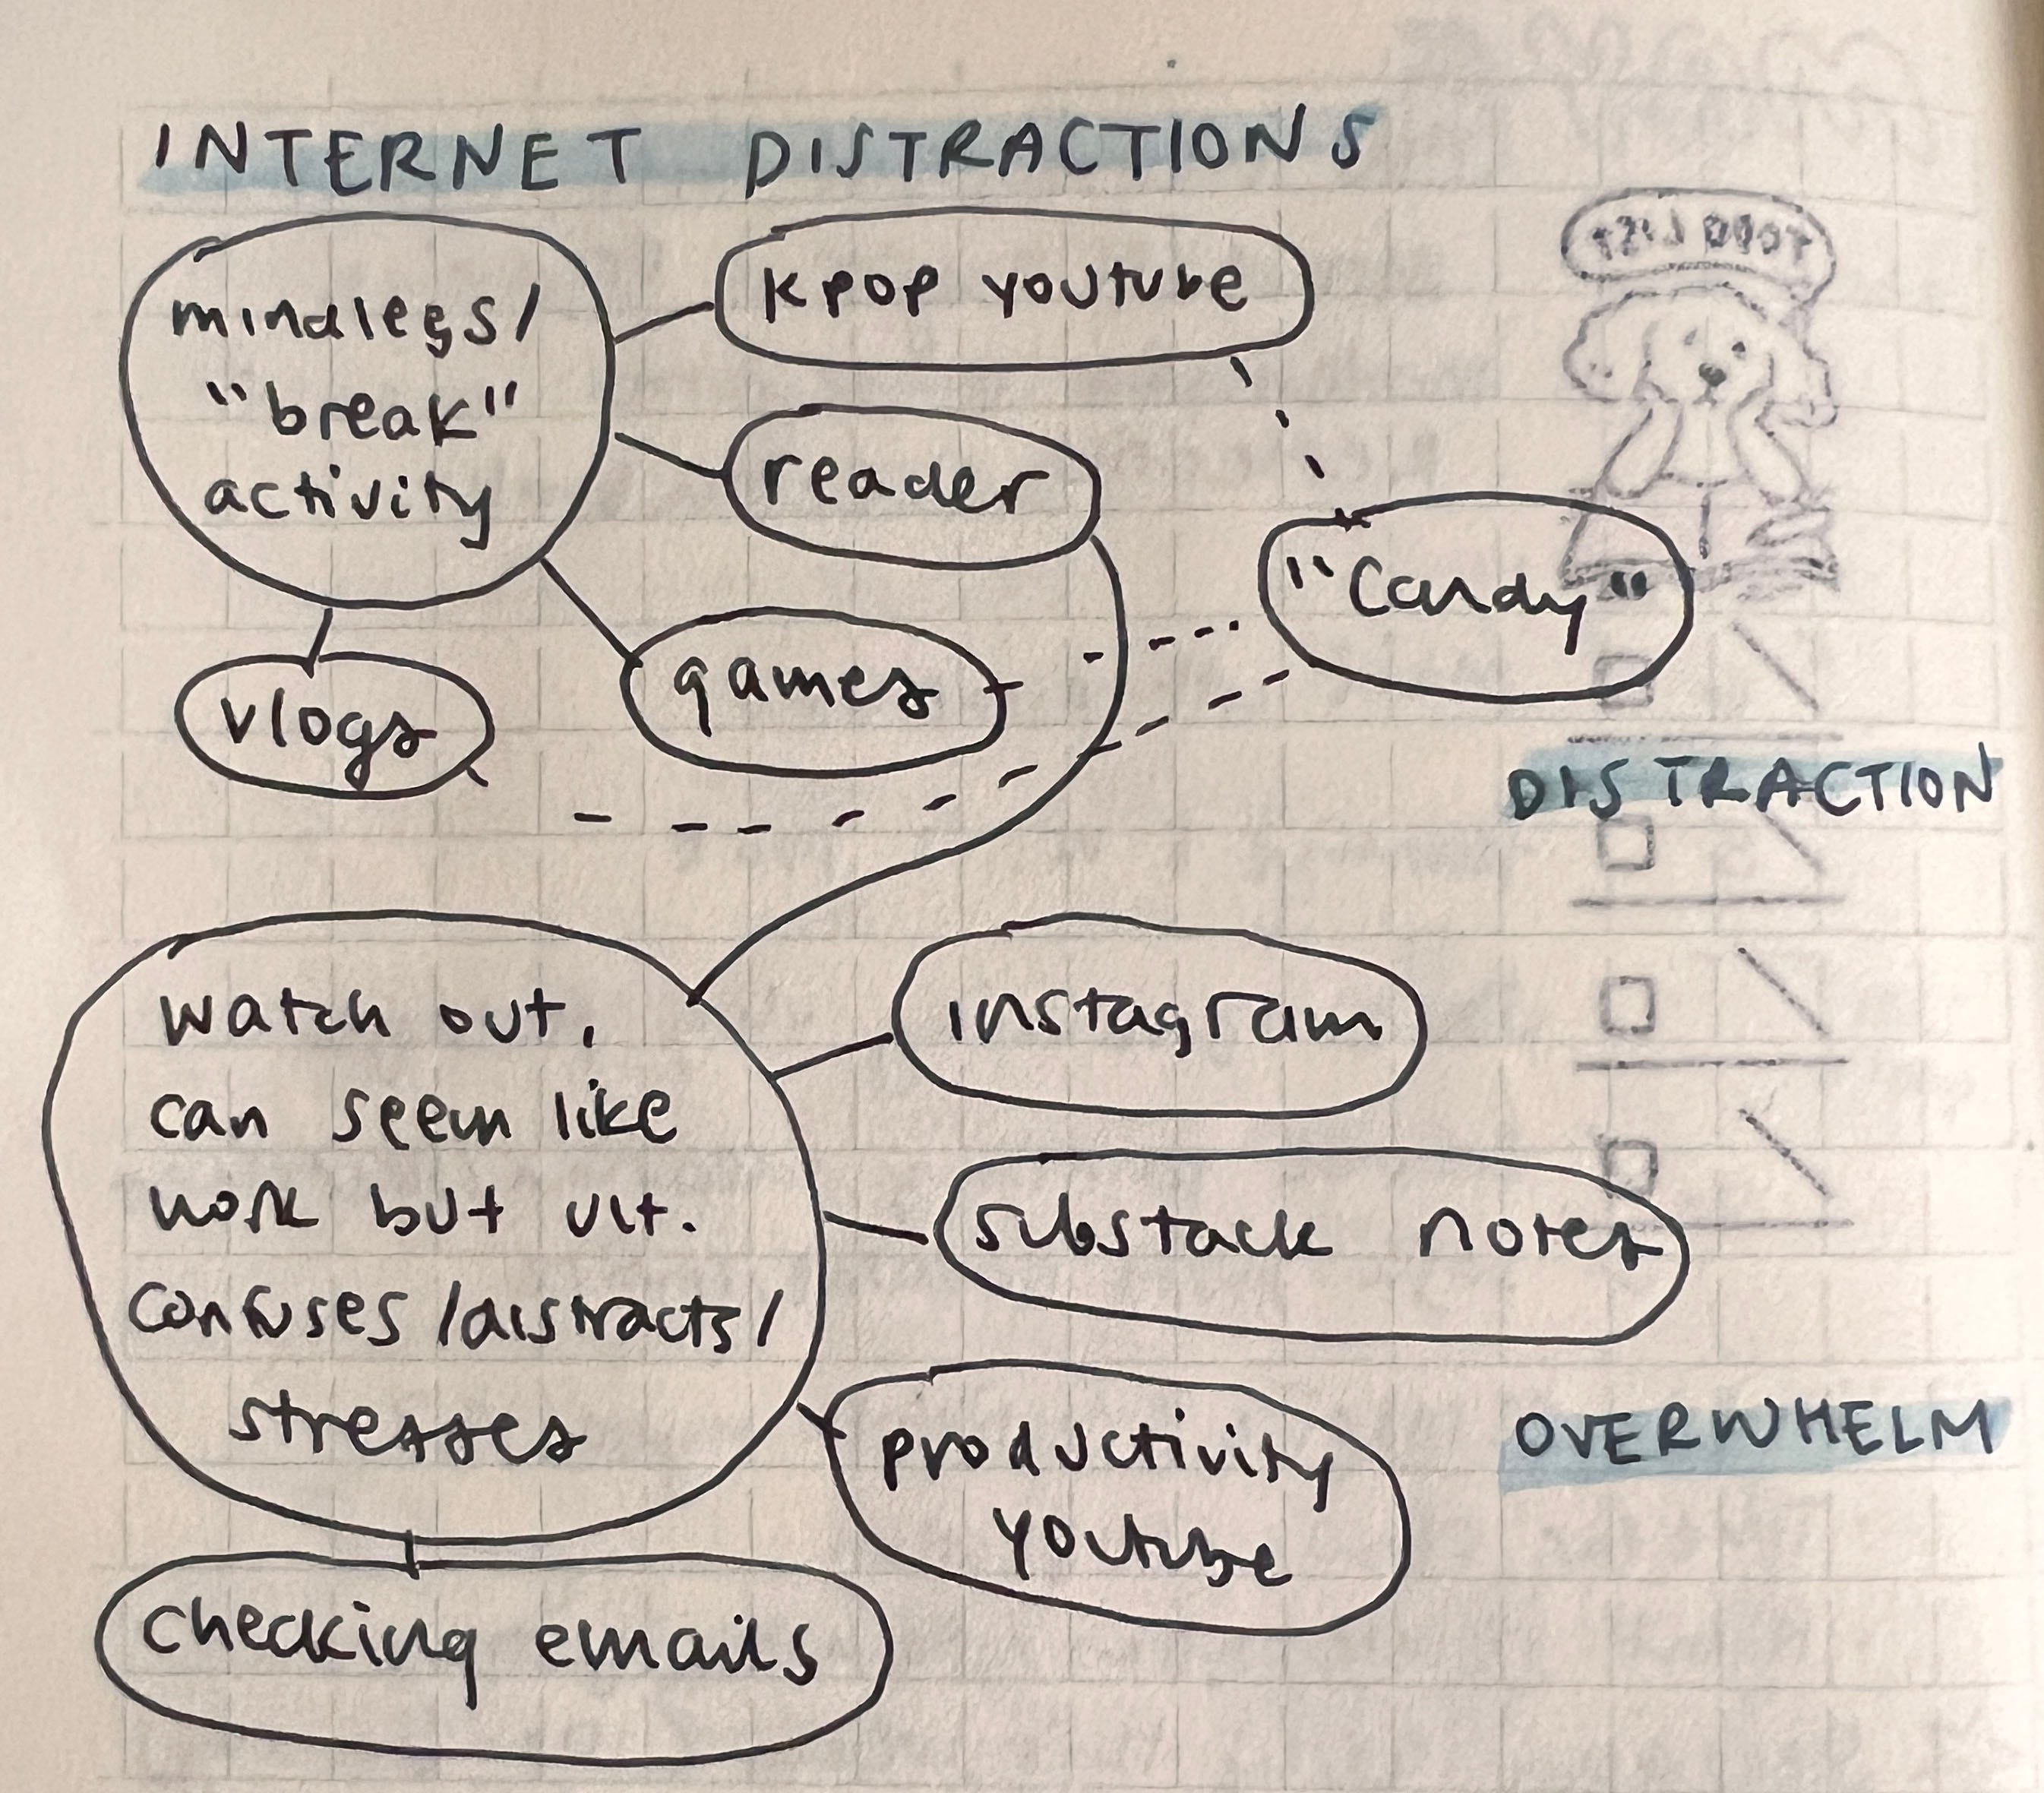 INTERNET DISTRACTIONS
mindlegs/
"break"
activity
kpop youtube
reader
"Candy"
games
vlogs
DISTRACTION
watch out,
can seem like
work but ult.
confuses/distracts/
stresses
instagram
substack notes
productivity
youtube
OVERWHELM
checking emails